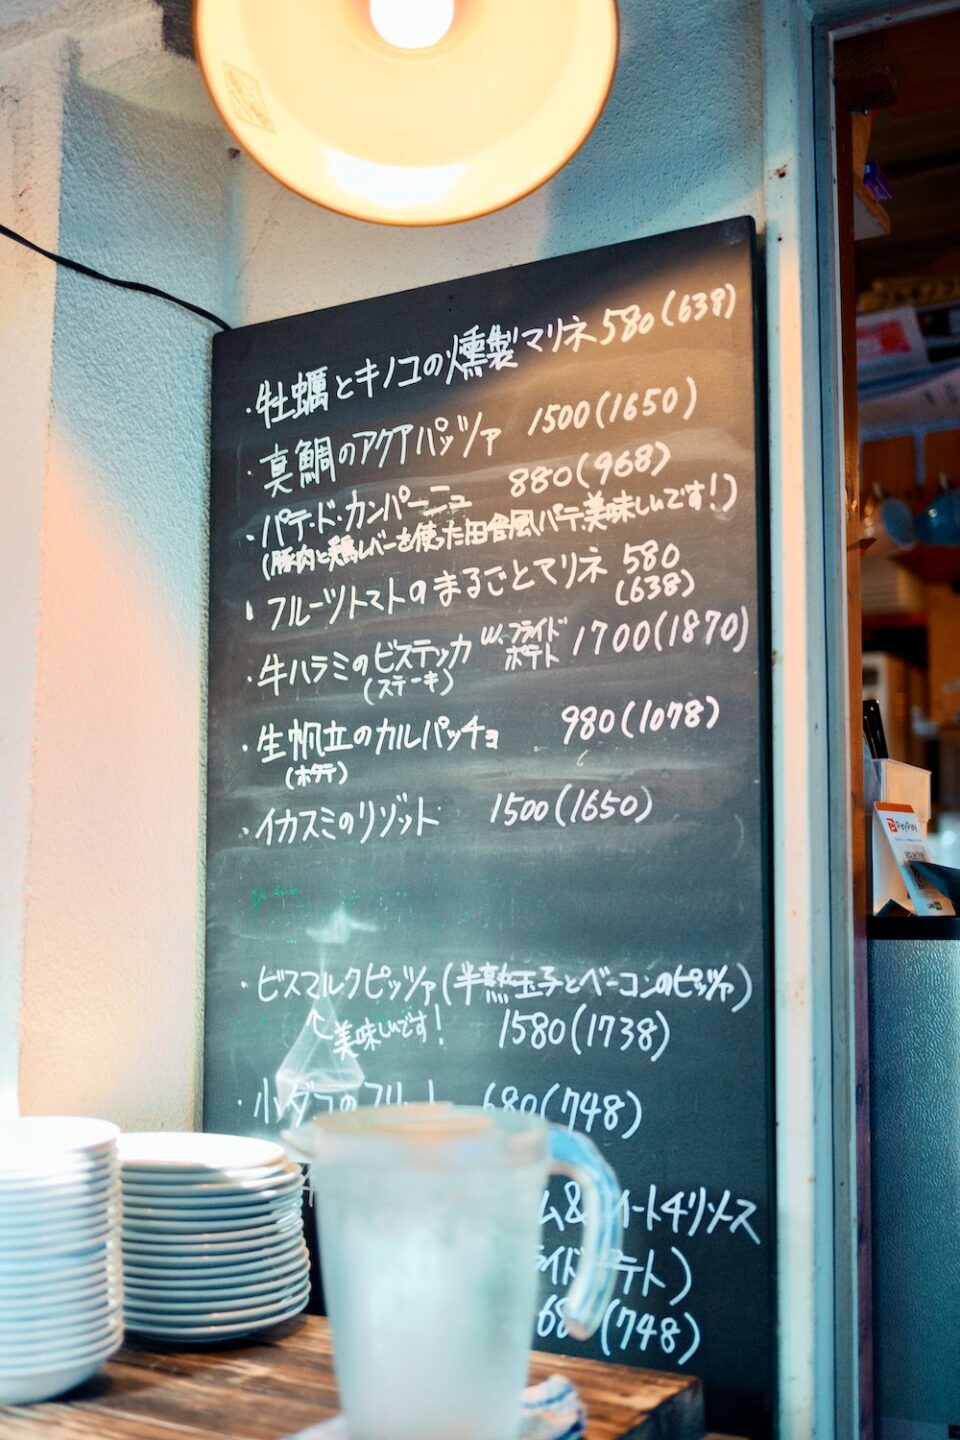 ・牡蠣とキノコの燻製マリネ 580(638)
・真鯛のアクアパッツァ 1500(1650)
・パテ・ド・カンパーニュ 880(968)
(豚肉と鶏レバーを使った田舎風パテ、美味しいです!)
・フルーツトマトのまるごとマリネ 580
(638)
・牛ハラミのビステッカ W.フライドポテト 1700(1870)
(ステーキ)
・生帆立のカルパッチョ 980(1078)
(ホタテ)
・イカスミのリゾット 1500(1650)
・ビスマルクピッツァ(半熟玉子とベーコンのピッツァ)
↑美味しいです! 1580(1738)
・小ダコのフリット 680(748)
ム& イートチリソース
ライド テト)
68 (748)
PayPay